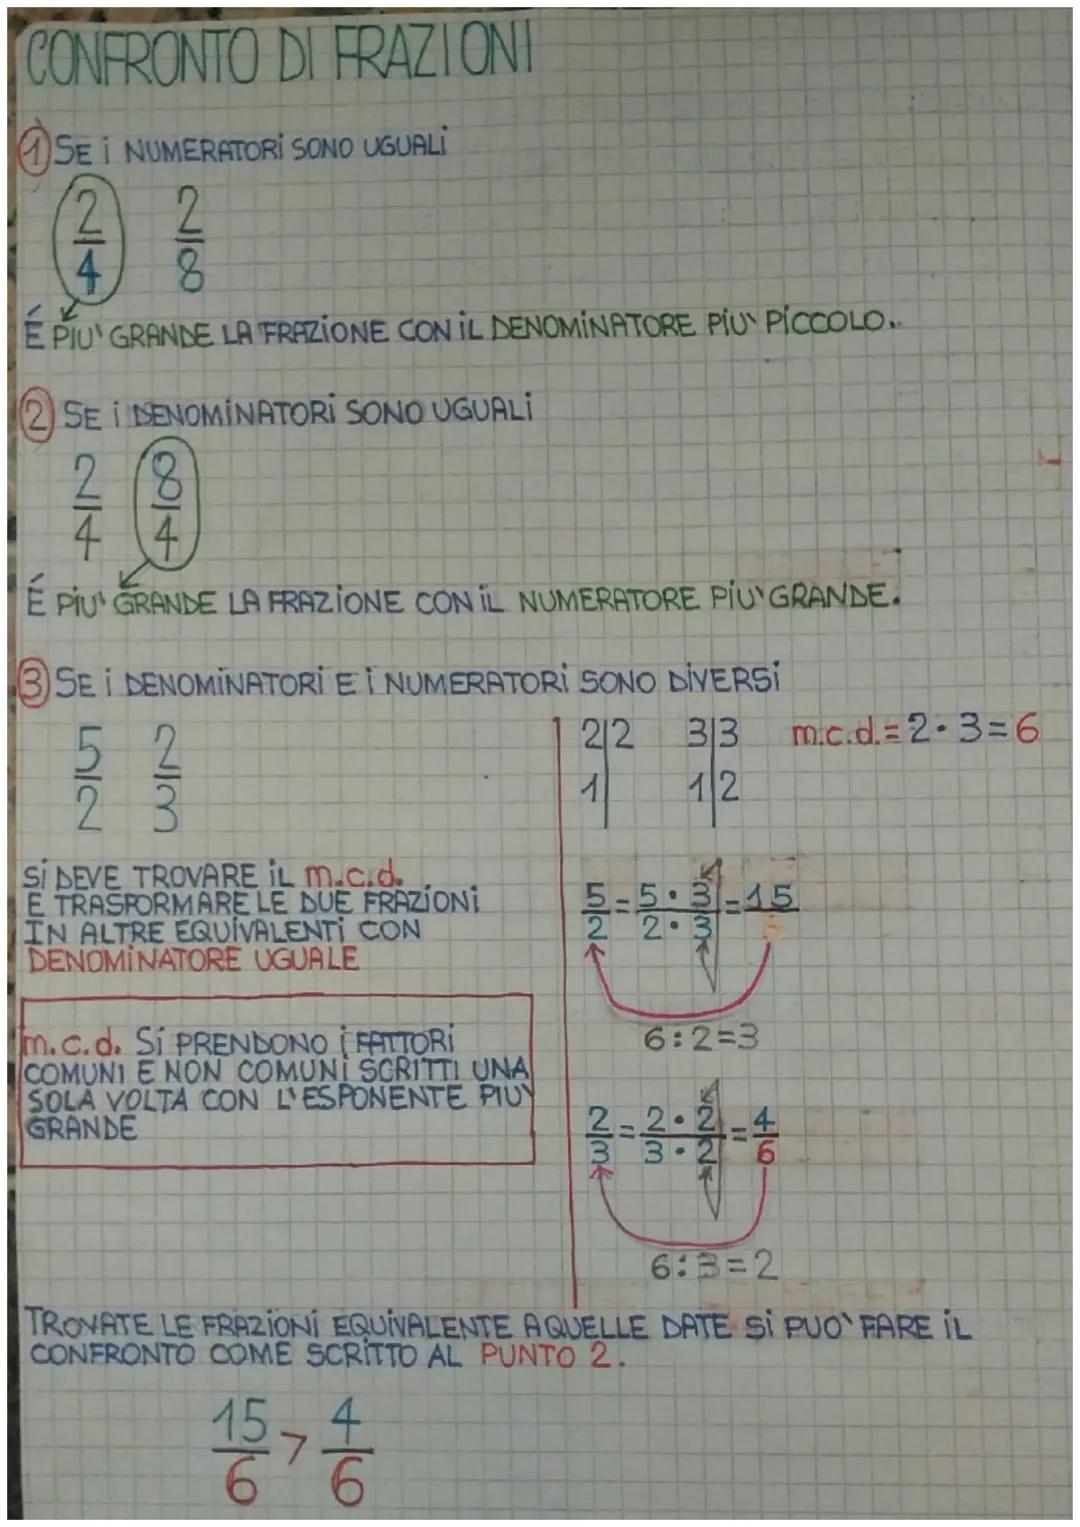 CONFRONTO DI FRAZIONI
1 SE I NUMERATORI SONO UGUALI
2/4 2/8
É PIU' GRANDE LA FRAZIONE CON IL DENOMINATORE PIU' PICCOLO.
2 SE I DENOMINATORI SONO UGUALI
2/4 8/4
É PIU' GRANDE LA FRAZIONE CON IL NUMERATORE PIU' GRANDE.
3 SE I DENOMINATORI E I NUMERATORI SONO DIVERSI
5/2 2/3
SI DEVE TROVARE IL m.c.d.
E TRASFORMARE LE DUE FRAZIONI
IN ALTRE EQUIVALENTI CON
DENOMINATORE UGUALE
m.c.d. SI PRENDONO I FATTORI
COMUNI E NON COMUNI SCRITTI UNA
SOLA VOLTA CON L'ESPONENTE PIU'
GRANDE
2|2 3|3 m.c.d.= 2·3=6
1| 1|2
5/2 = 5·3/2·3 = 15/6
6:2=3
2/3 = 2·2/3·2 = 4/6
6:3=2
TROVATE LE FRAZIONI EQUIVALENTE A QUELLE DATE SI PUO' FARE IL
CONFRONTO COME SCRITTO AL PUNTO 2.
15/6 > 4/6